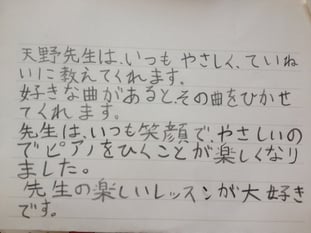 天野先生は、いつも やさしく、ていね
いに教えてくれます。
好きな曲があると、その曲をひかせ
てくれます。
先生は、いつも笑顔で、やさしいの
でピアノをひくことが楽しくなり
ました。
先生の楽しいレッスンが大好き
です。